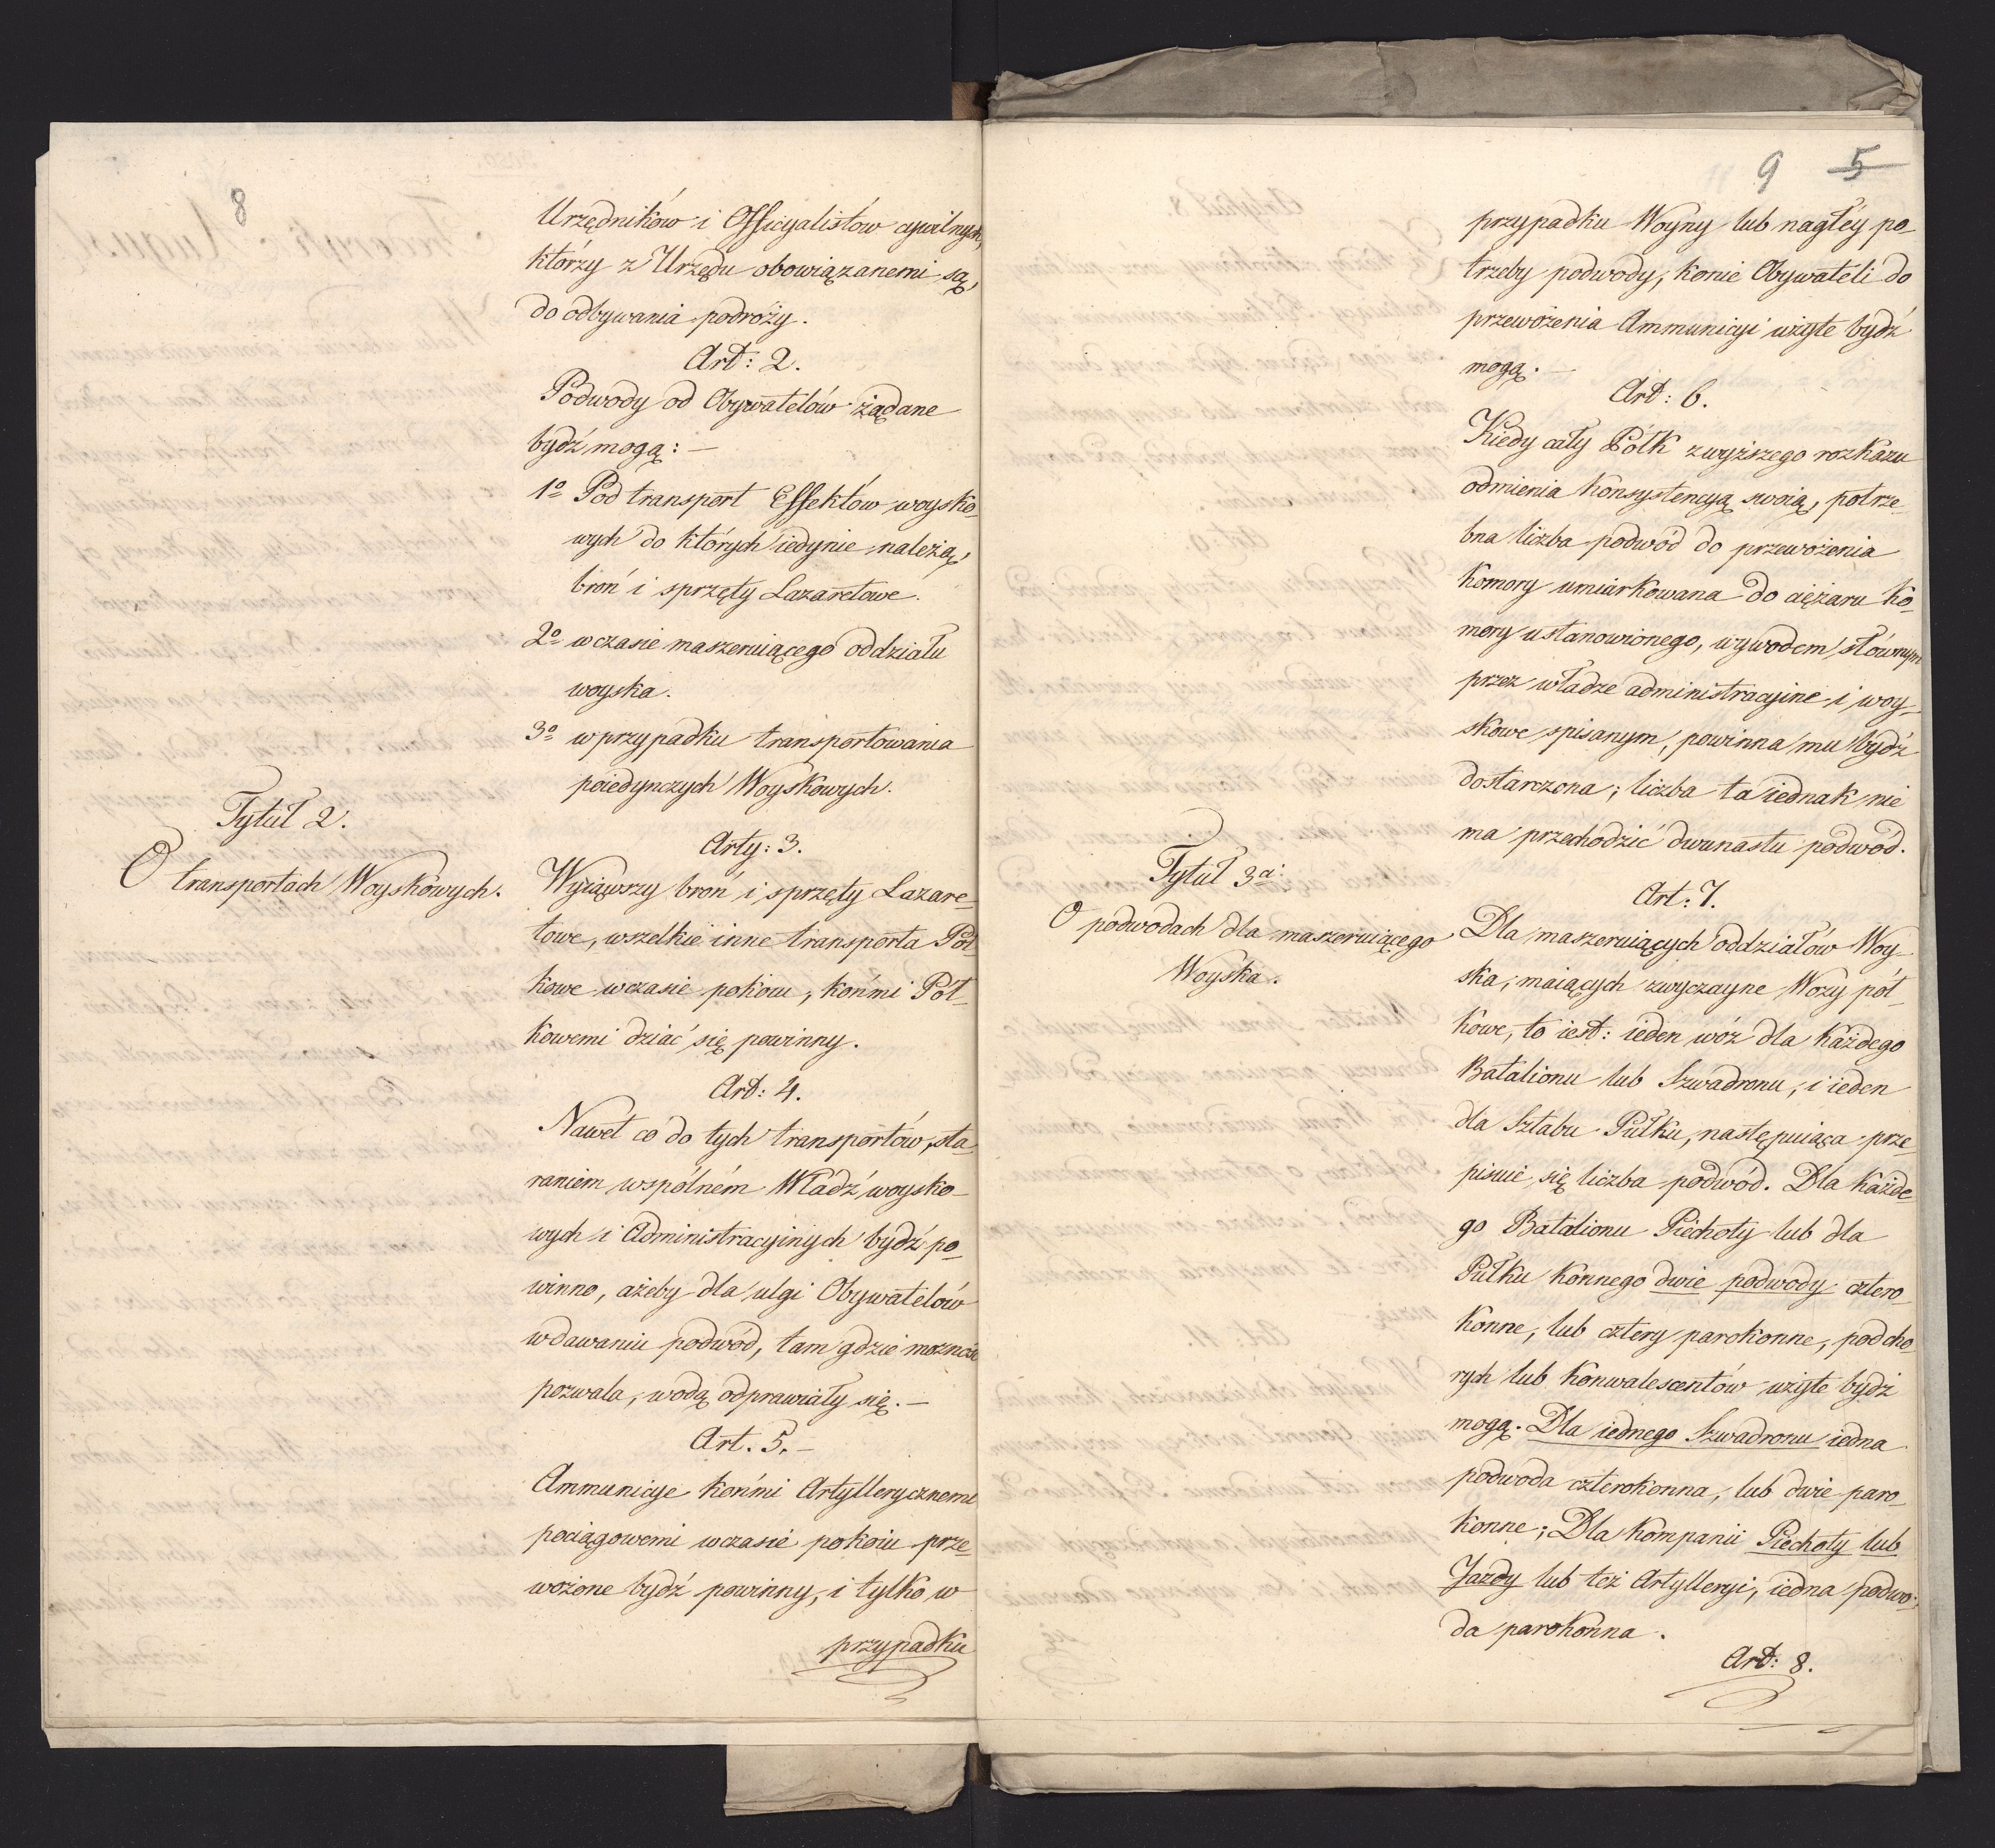 8
Urzędników i Officyalistów cywilnych,
którzy z Urzędu obowiązanemi są,
do odbywania podróży.
Art: 2.
Podwody od Obywatelów żądane
bydź mogą: —
1o Pod transport Effektów woysko-
wych do których iedynie należą,
broń i sprzęty Lazaretowe.
2o w czasie maszeruiącego oddziału
woyska.
3o w przypadku transportowania
poiedynczych Woyskowych.
Tytuł 2.
O transportach Woyskowych.
Arty: 3.
Wyiąwszy broń i sprzęty Lazare-
towe, wszelkie inne transporta Pół-
kowe w czasie pokoiu, końmi Pół-
kowemi dziać się powinny.
Art: 4.
Nawet co do tych transportów, sta-
raniem wspólném Władź woysko-
wych i Administracyinych bydź po-
winno, ażeby dla ulgi Obywatelów
w dawaniu podwód, tam gdzie możność
pozwala, wodą odprawiały się. —
Art. 5. —
Ammunicye końmi Artyllerycznemi
pociągowemi w czasie pokoiu prze-
wożone bydź powinny, i tylko w
przypadku
9 5
przypadku Woyny lub nagłey po-
trzeby podwody, konie Obywateli do
przewożenia Ammunicyi użyte bydź
mogą. —
Art: 6.
Kiedy cały Półk z wyższego rozkazu
odmienia konsystencyą swoią, potrze-
bna liczba podwód do przewożenia
Komory umiarkowana do ciężaru Ko-
mory ustanowionego, wywodem słównym
przez władze administracyine i woy-
skowe spisanym, powinna mu bydź
dostarczona; liczba ta iednak nie
ma przechodzić dwunastu podwód.
Tytuł 3ci:
O podwodach dla maszeruiącego
Woyska.
Art: 7.
Dla maszeruiących oddziałów Woy-
ska, maiących zwyczayne Wozy pół-
kowe, to iest: ieden wóz dla każdego
Batalionu lub Szwadronu, i ieden
dla Sztabu Pułku, następuiąca prze-
pisuie się liczba podwód. Dla każde-
go Batalionu Piechoty lub dla
Pułku konnego dwie podwody cztero-
konne, lub cztery parokonne, pod cho-
rych lub konwalescentów użyte bydź
mogą. Dla iednego Szwadronu iedna
podwoda czterokonna, lub dwie paro-
konne; Dla kompanii Piechoty lub
Jazdy lub też Artylleryi, iedna podwo-
da parokonna.
Art: 8.